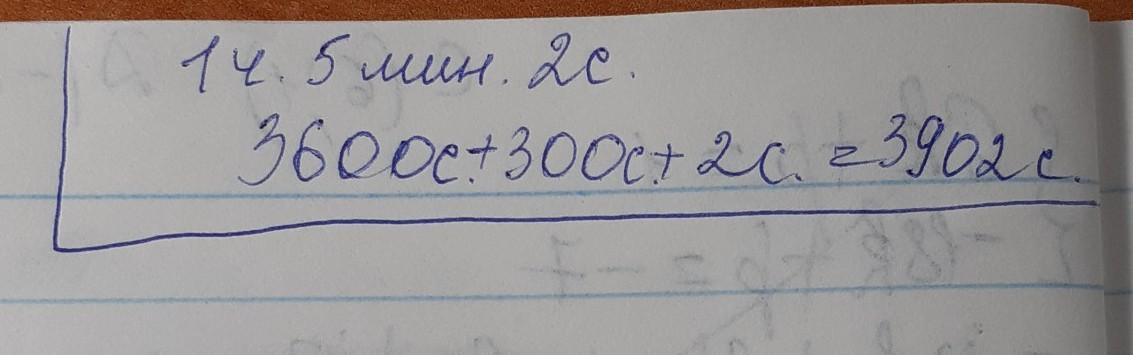 1 ч. 5 мин. 2с.
3600с.+300с.+2с. =3902с.